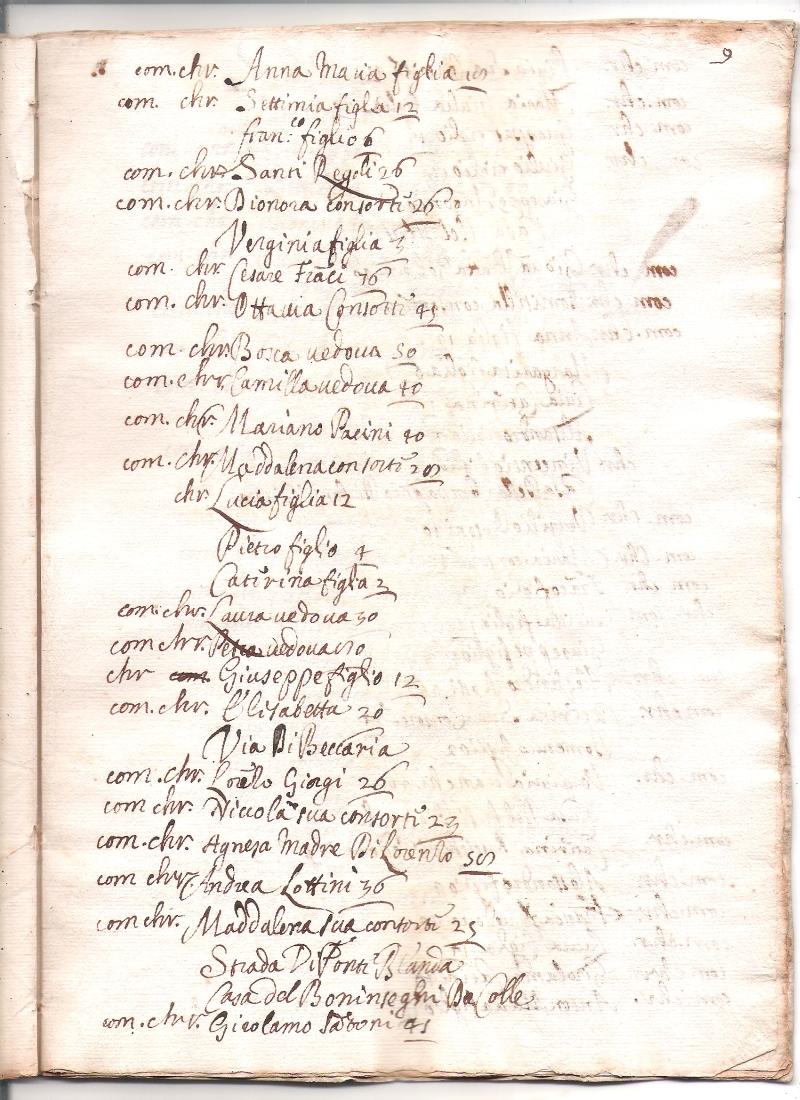 9
com. chr. Anna Maria figlia
com. chr. Settimia figlia 12
fran.co figlio 6
com. chr. Santi Regoli 26
com. chr. Dionora consorte 26
Verginia figlia 3
com. chr. Cesare Franci 36
com. chr. Ottavia Consorte 45
com. chr. vedova 50
com. chr. Camilla vedova 40
com. chr. Mariano Pacini 40
com. chr. Maddalena consorte
chr. Lucia figlia 12
Pietro figlio 4
Caterina figlia 2
com. chr. Laura vedova 30
com. chr. vedova
chr com Giuseppe figlio 12
com. chr. Elisabetta 20
Via Di Beccaria
com. chr. Lorenzo Giorgi 26
com. chr. Niccola sua consorte 23
com. chr. Agnesa Madre Di Lorenzo
com chr. Andrea Lottini 36
com chr. Maddalena sua consorte 25
Strada Di Fonte Blanda
Casa del Boninsegni Da Colle
com. chr. Girolamo 45